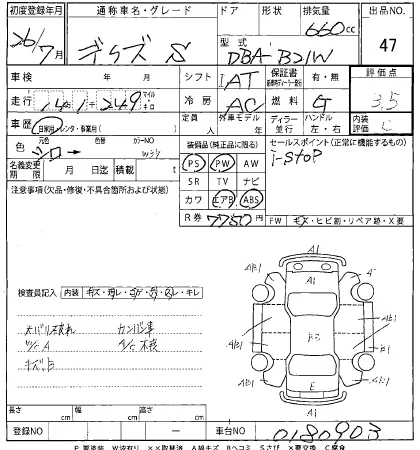 初度登録年月 通称車名・グレード ドア 形状 排気量 出品NO.
26/7月 デイズ S 660cc 47
型式 DBA-B21W
車検 年 月 シフト IAT 保証書 有・無 評価点
走行 141,249 マイル キロ 冷房 AC 燃料 G 3.5
車歴 自家用・レンタ・事業用( ) 定員 人 外車モデル 年 ディーラー 並行 ハンドル 左・右 内装評価 C
色 元色 シロ → 色替 カラーNO W37 装備品(純正品に限る) セールスポイント(正常に機能するもの)
PS PW AW i-stop
名義変更期限 月 日迄 積載 t SR TV ナビ
注意事項(欠品・修復・不具合箇所および状態) カワ エアB ABS
R券 7750円 FW キズ・ヒビ割・リペア跡・X要
A1
AB1 A
検査員記入 内装 キズ・汚レ・コゲ・穴・スレ・キレ
カンバン車
A/C不良
キズ、凹
B3
AB1
E
A1
長さ cm 幅 cm 高さ cm
登録NO ー 車台NO 0180903
P要塗装 W波有り XX取替済 A線キズ Bヘコミ Sさび X要交換 C腐食